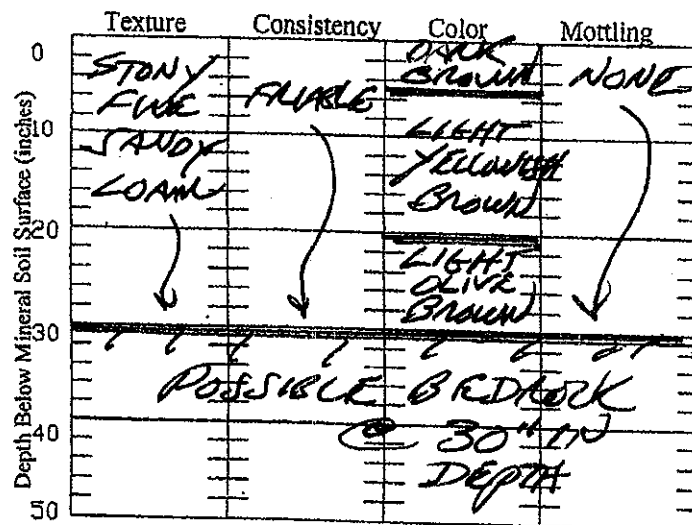 Texture Consistency Color Mottling
Depth Below Mineral Soil Surface (inches)
0
10
20
30
40
50
STONY
FINE
SANDY
LOAM
FRIABLE
DARK
BROWN
LIGHT
YELLOWISH
BROWN
LIGHT
OLIVE
BROWN
NONE
POSSIBLE BEDROCK
@ 30" IN
DEPTH